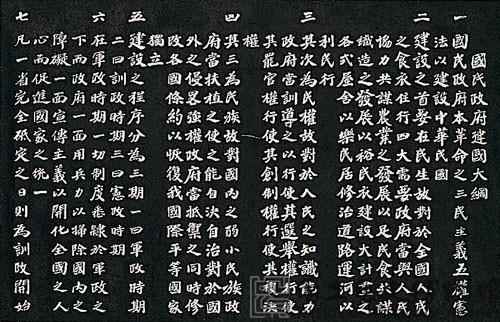 國民政府建國大綱
一 國民政府本革命之三民主義五權憲
法以建設中華民國
二 建設之首要在民生故對於全國人民
之食衣住行四大需要政府當與人民
協力共謀農業之發展以足民食共謀
織造之發展以裕民衣建設大計畫之
各式屋舍以樂民居修治道路運河以
利民行
三 其次為民權故對於人民之知識能力
政府當訓導之以行使其選舉權行使
其罷官權行使其創制權行使其複決
權
四 其三為民族故對國內之弱小民族政
府當扶植之使之能自決自治對於國
外之侵畧強權政府當抵禦之同時修
改各國條約以恢復我國際平等國家
獨立
五 建設之程序分為三期一曰軍政時期
二曰訓政時期三曰憲政時期
六 在軍政時期一切制度悉隸於軍政之
下而政府一面用兵力以掃除國內之
障礙一面宣傳主義以開化全國之人
心而促進國家之統一
七 凡一省完全砥定之日則為訓政開始